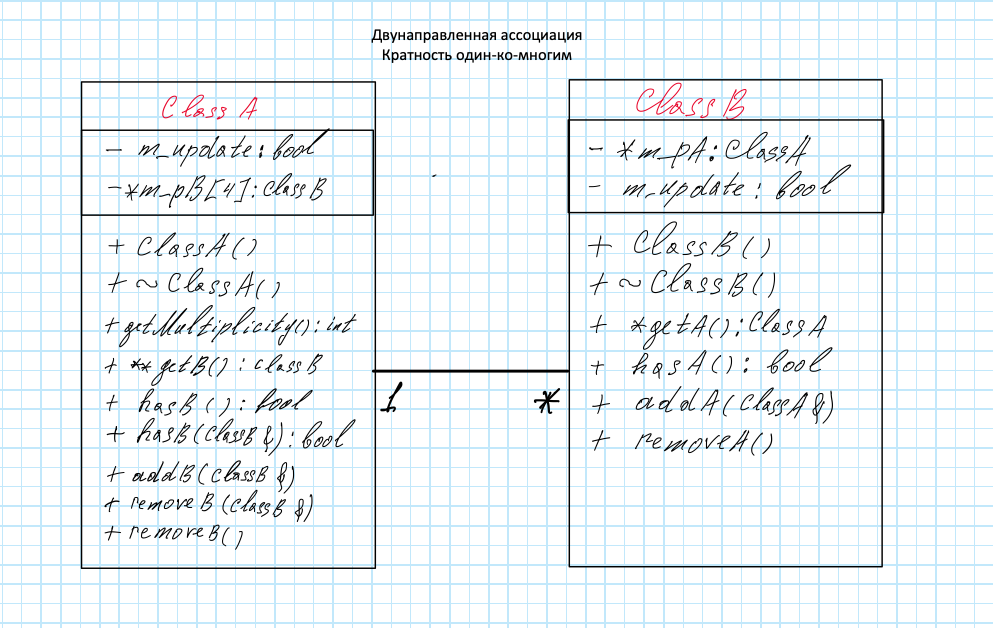 Двунаправленная ассоциация
Кратность один-ко-многим
Class A
- m_update: bool
- *m_pB[4]: ClassB
+ ClassA()
+ ~ClassA()
+ getMultiplicity(): int
+ **getB(): classB
+ hasB(): bool
+ hasB(ClassB &): bool
+ addB(ClassB &)
+ removeB(ClassB &)
+ removeB()
1
*
Class B
- *m_pA: ClassA
- m_update: bool
+ ClassB()
+ ~ClassB()
+ *getA(): ClassA
+ hasA(): bool
+ addA(ClassA &)
+ removeA()